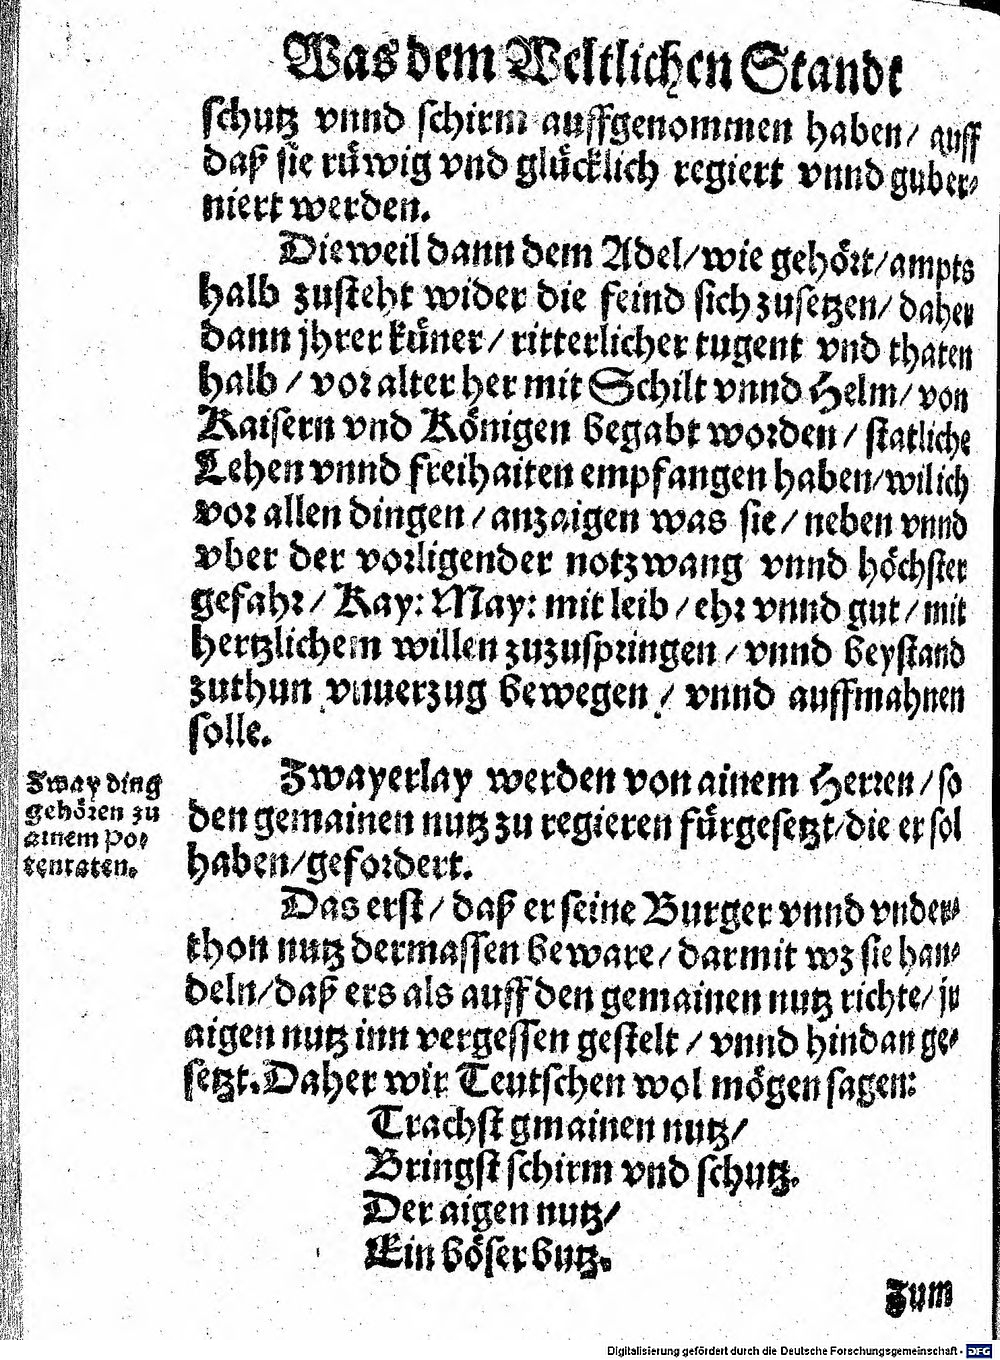 Was dem Weltlichen Standt
schutz vnnd schirm auffgenommen haben/ auff
daß sie rüwig vnd glücklich regiert vnnd guber⸗
niert werden.
Dieweil dann dem Adel/ wie gehört/ ampts
halb zusteht wider die feind sich zusetzen/ daher
dann jhrer küner/ ritterlicher tugent vnd thaten
halb/ vor alter her mit Schilt vnnd Helm/ von
Kaisern vnd Königen begabt worden/ statliche
Lehen vnnd freihaiten empfangen haben/ wilich
vor allen dingen/ anzaigen was sie/ neben vnnd
vber der vorligender notzwang vnnd höchster
gefahr/ Kay: May: mit leib/ ehr vnnd gut/ mit
hertzlichem willen zuzuspringen/ vnnd beystand
zuthun vnuerzug bewegen/ vnnd auffmahnen
solle.
Zway ding
gehören zu
ainem Po⸗
tentaten.
Zwayerlay werden von ainem Herren/ so
den gemainen nutz zu regieren fürgesetzt/ die er sol
haben/ gefordert.
Das erst/ daß er seine Burger vnnd vnder⸗
thon nutz dermassen beware/ darmit wz sie han⸗
deln/ daß ers als auff den gemainen nutz richte/ jr
aigen nutz inn vergessen gestelt/ vnnd hindan ge⸗
setzt. Daher wir Teutschen wol mögen sagen:
Trachst gmainen nutz/
Bringst schirm vnd schutz.
Der aigen nutz/
Ein böser butz.
Zum
Digitalisierung gefördert durch die Deutsche Forschungsgemeinschaft - DFG